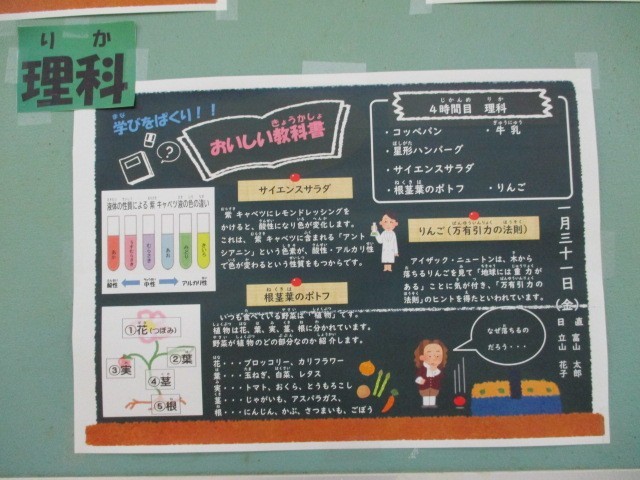 りか
理科
学びをぱくり！！
おいしい教科書
4時間目 理科
・コッペパン
・牛乳
・星形ハンバーグ
・サイエンスサラダ
・根茎葉のポトフ
・りんご
液体の性質による 紫 キャベツ液の色の違い
酸性
中性
アルカリ性
サイエンスサラダ
紫 キャベツにレモンドレッシングを
かけると、酸性になり色が変化します。
これは、紫 キャベツに含まれる「アント
シアニン」という色素が、酸性・アルカリ性
で色が変わるという性質をもつからです。
りんご（万有引力の法則）
アイザック・ニュートンは、木から
落ちるりんごを見て「地球には重 力が
ある」ことに気が付き、「万有引力の
法則」のヒントを得たといわれています。
根茎葉のポトフ
いつも食べている野菜は「植物」です。
植物は花、葉、実、茎、根に分かれています。
野菜が植物のどの部分なのか紹介します。
花・・・ブロッコリー、カリフラワー
葉・・・玉ねぎ、白菜、レタス
実・・・トマト、おくら、とうもろこし
茎・・・じゃがいも、アスパラガス、
根・・・にんじん、かぶ、さつまいも、ごぼう
①花（つぼみ）
②葉
③実
④茎
⑤根
なぜ落ちるの
だろう・・・
一月三十一日（金）
日直 富山 太郎
立山 花子